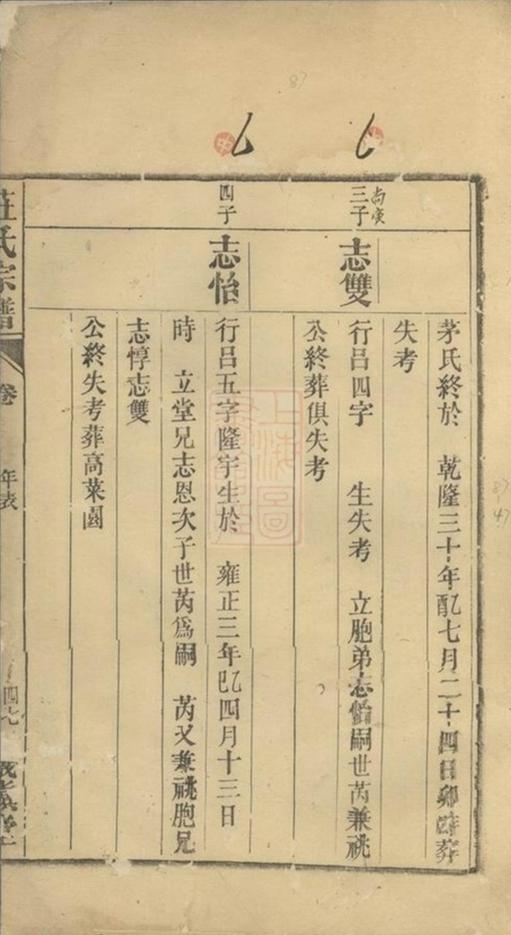 茅氏終於 乾隆三十年配七月二十四日卯時葬
失考
尚賓
三子
志雙
行呂四字 生失考 立胞弟志怡嗣世芮兼祧
公終葬俱失考
四子
志怡
行呂五字隆宇生於 雍正三年乙巳四月十三日
時 立堂兄志恩次子世芮爲嗣 芮又兼祧胞兄
志惇志雙
公終失考葬高菜園
莊氏宗譜
卷 年表
四七